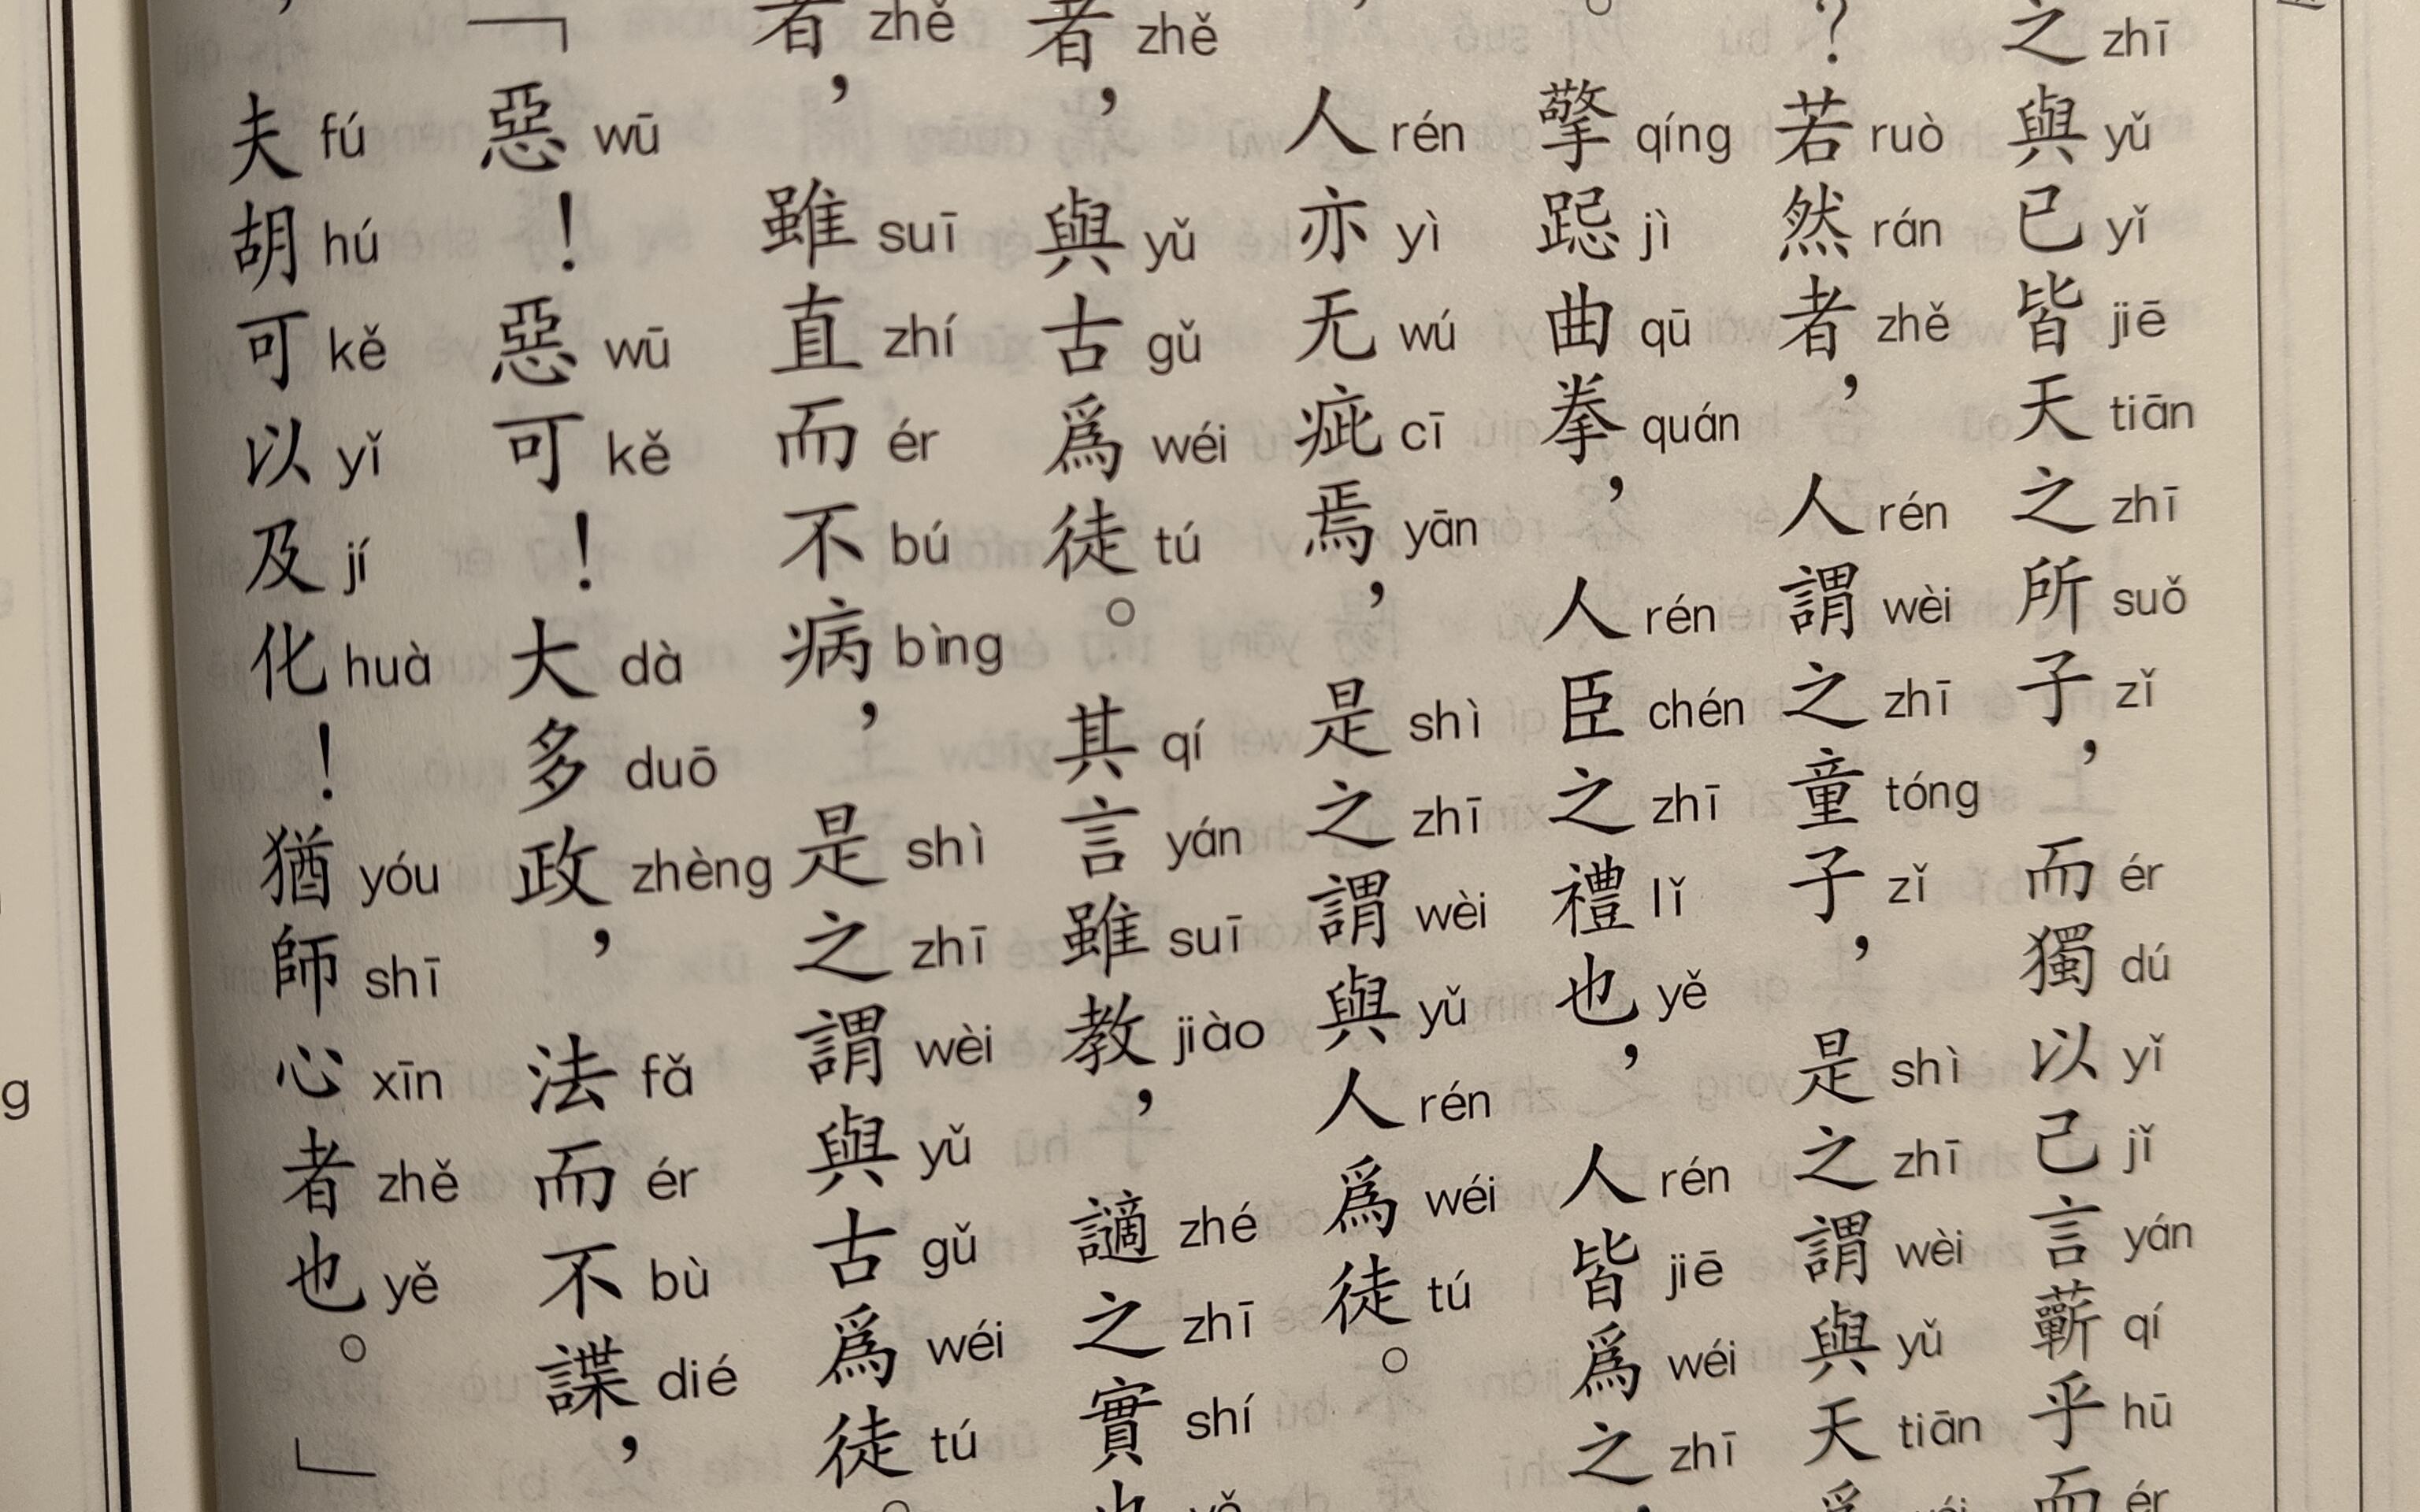 之zhī與yǔ已yǐ皆jiē天tiān之zhī所suǒ子zǐ，而ér獨dú以yǐ己jǐ言yán蘄qí乎hū而ér
？若ruò然rán者zhě，人rén謂wèi之zhī童tóng子zǐ，是shì之zhī謂wèi與yǔ天tiān爲wéi
。擎qíng跽jì曲qū拳quán，人rén臣chén之zhī禮lǐ也yě，人rén皆jiē爲wéi之zhī，
，人rén亦yì无wú疵cī焉yān，是shì之zhī謂wèi與yǔ人rén爲wéi徒tú。
者zhě，與yǔ古gǔ爲wéi徒tú。其qí言yán雖suī教jiào，讁zhé之zhī實shí也yě
者zhě，雖suī直zhí而ér不bú病bìng，是shì之zhī謂wèi與yǔ古gǔ爲wéi徒tú。
「惡wū！惡wū可kě！大dà多duō政zhèng，法fǎ而ér不bù諜dié，
，夫fú胡hú可kě以yǐ及jí化huà！猶yóu師shī心xīn者zhě也yě。」
g